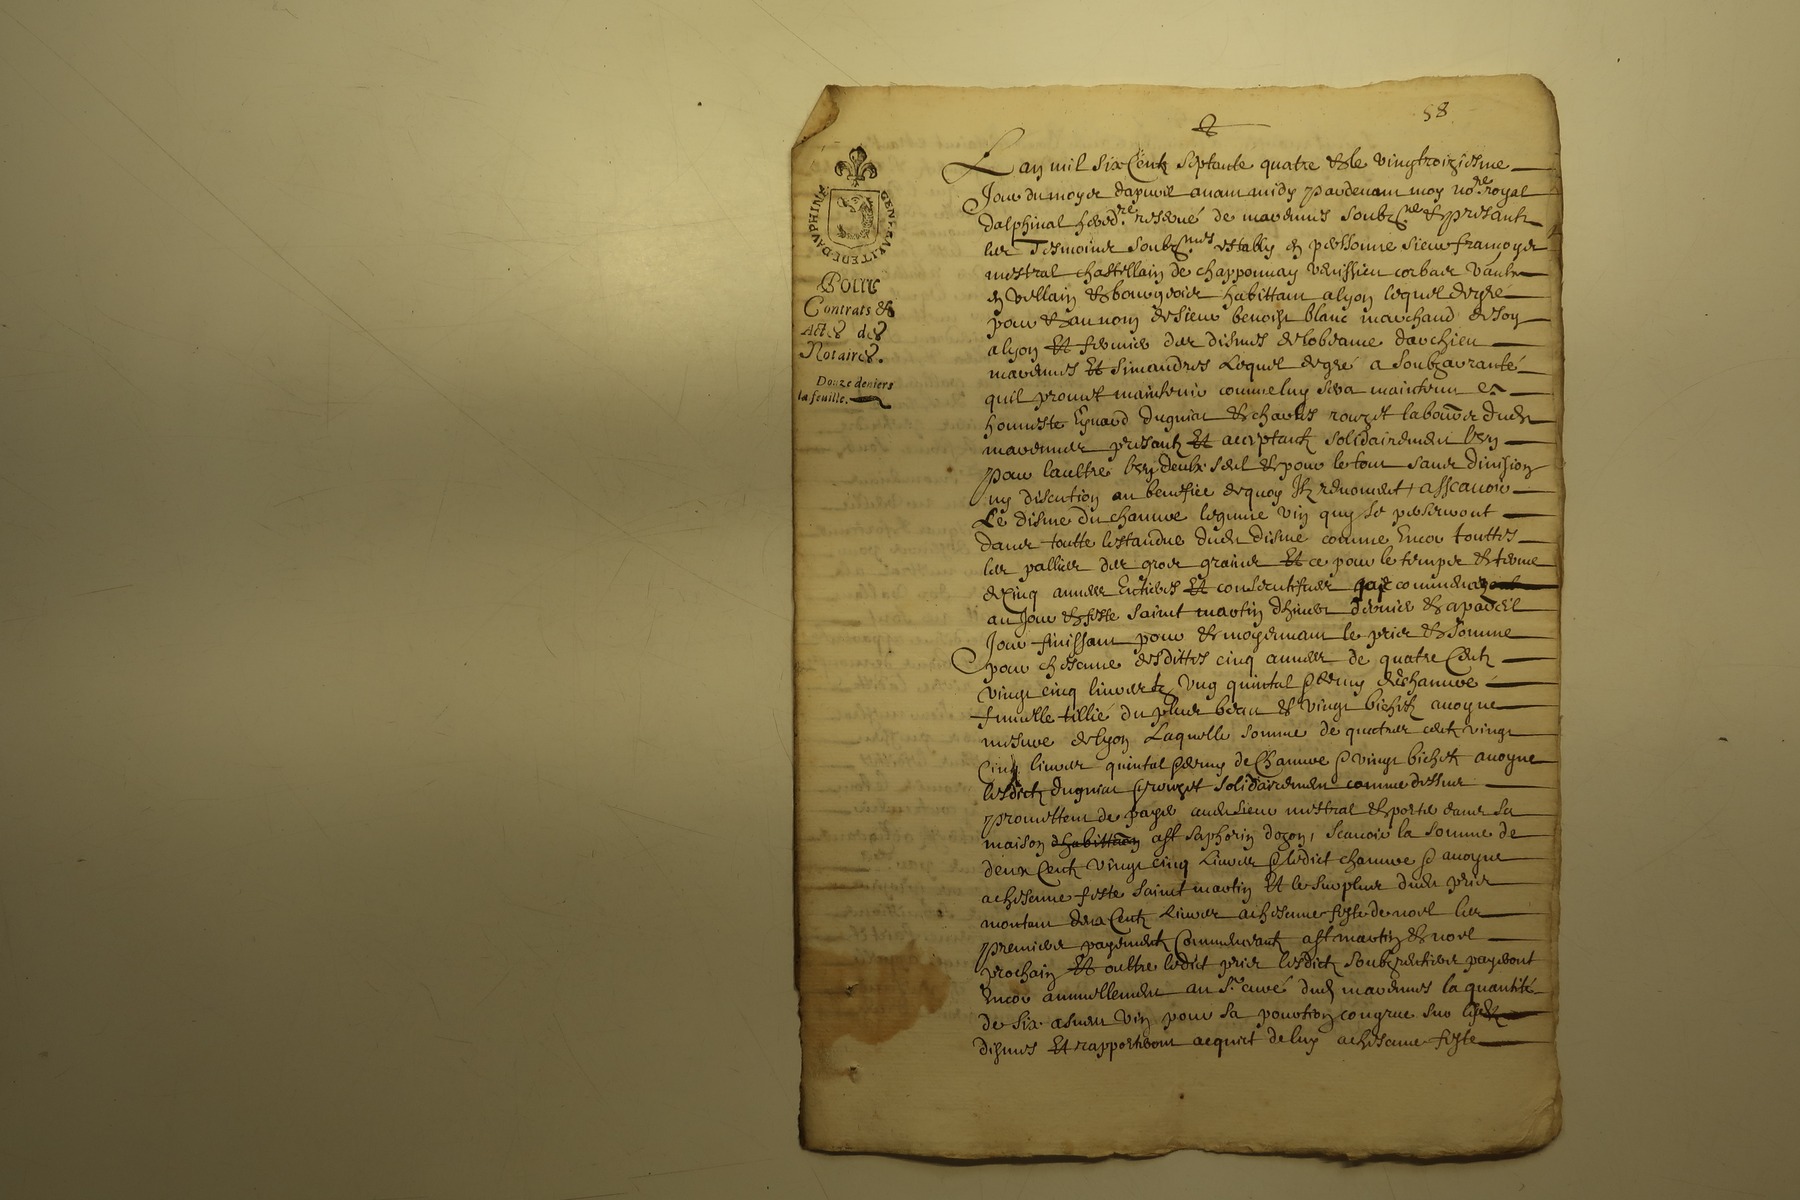 58
GENERALITE DE DAUPHINE
Pour
Contrats &
Actes des
Notaires.
Douze deniers
la feuille.
Lan mil six Centz septante quatre & le vingtroiziesme
Jour du moys dapvril avant midy pardevant moy nore royal
dalphinal hered.re reservé de marennes soubzne & presantz
les Tesmoins soubznés estably en personne sieur françoys
mestral chastellain de chapponnay venissieu corbas vaulx
en vellain & bourgeois habittant a lyon lequel de gré
pour & au nom de sieur benoist blanc marchand de soy
a lyon Et fermier des dismes de lobeance
marennes Et simandres Lequel de gré a soubzarranté
quil promet maintenir comme luy sera maintenu
honneste Eynard duguiat & charles rouzet laboure dudt
marennes presantz Et acceptantz solidairement lun
pour laultre lun deulx seul & pour le tout sans division
ny discution au benefice de quoy Ilz renoncent, assavoir
Le disme du chanvre legume vin quy se perservont
dans toutte lestandue dudt disme comme Encor touttes
les pallies des gros grains Et ce pour le temps & terme
de Cinq annees Entieres Et consecutifves
au Jour & feste saint martin dhiver dernier & a pareil
Jour finissant pour & moyennant le pris & somme
pour chescune desdittes cinq annees de quatre Centz
vingt cinq livres ung quintal & demy de chanvre
fumelle tillié du plus beau & vingt bichetz avoyne
mesure de lyon Laquelle somme de quatres centz vingt
Cinq livres quintal & demy de Chanvre & vingt bichetz avoyne
lesdictz duguiat & rouzet solidairement comme dessus
promettent de payer audt sieur mestral & porter dans sa
maison dhabittaon a st saphorin dozon, scavoir la somme de
deux Centz vingt cinq Livres & ledict chanvre & avoyne
a chescune feste saint martin Et le surplus dudt pris
montant deux Centz Livres a chescune feste de noel les
premiers payementz Commencantz a st martin & noel
prochain Et oultre ledict pris lesdictz soubzrentiers payeront
Encor annuellement au sr curé dudt marennes la quantité
de six asnees vin pour sa pourtion congrue sur
dismes Et rapporteront acquict de luy a chescune feste